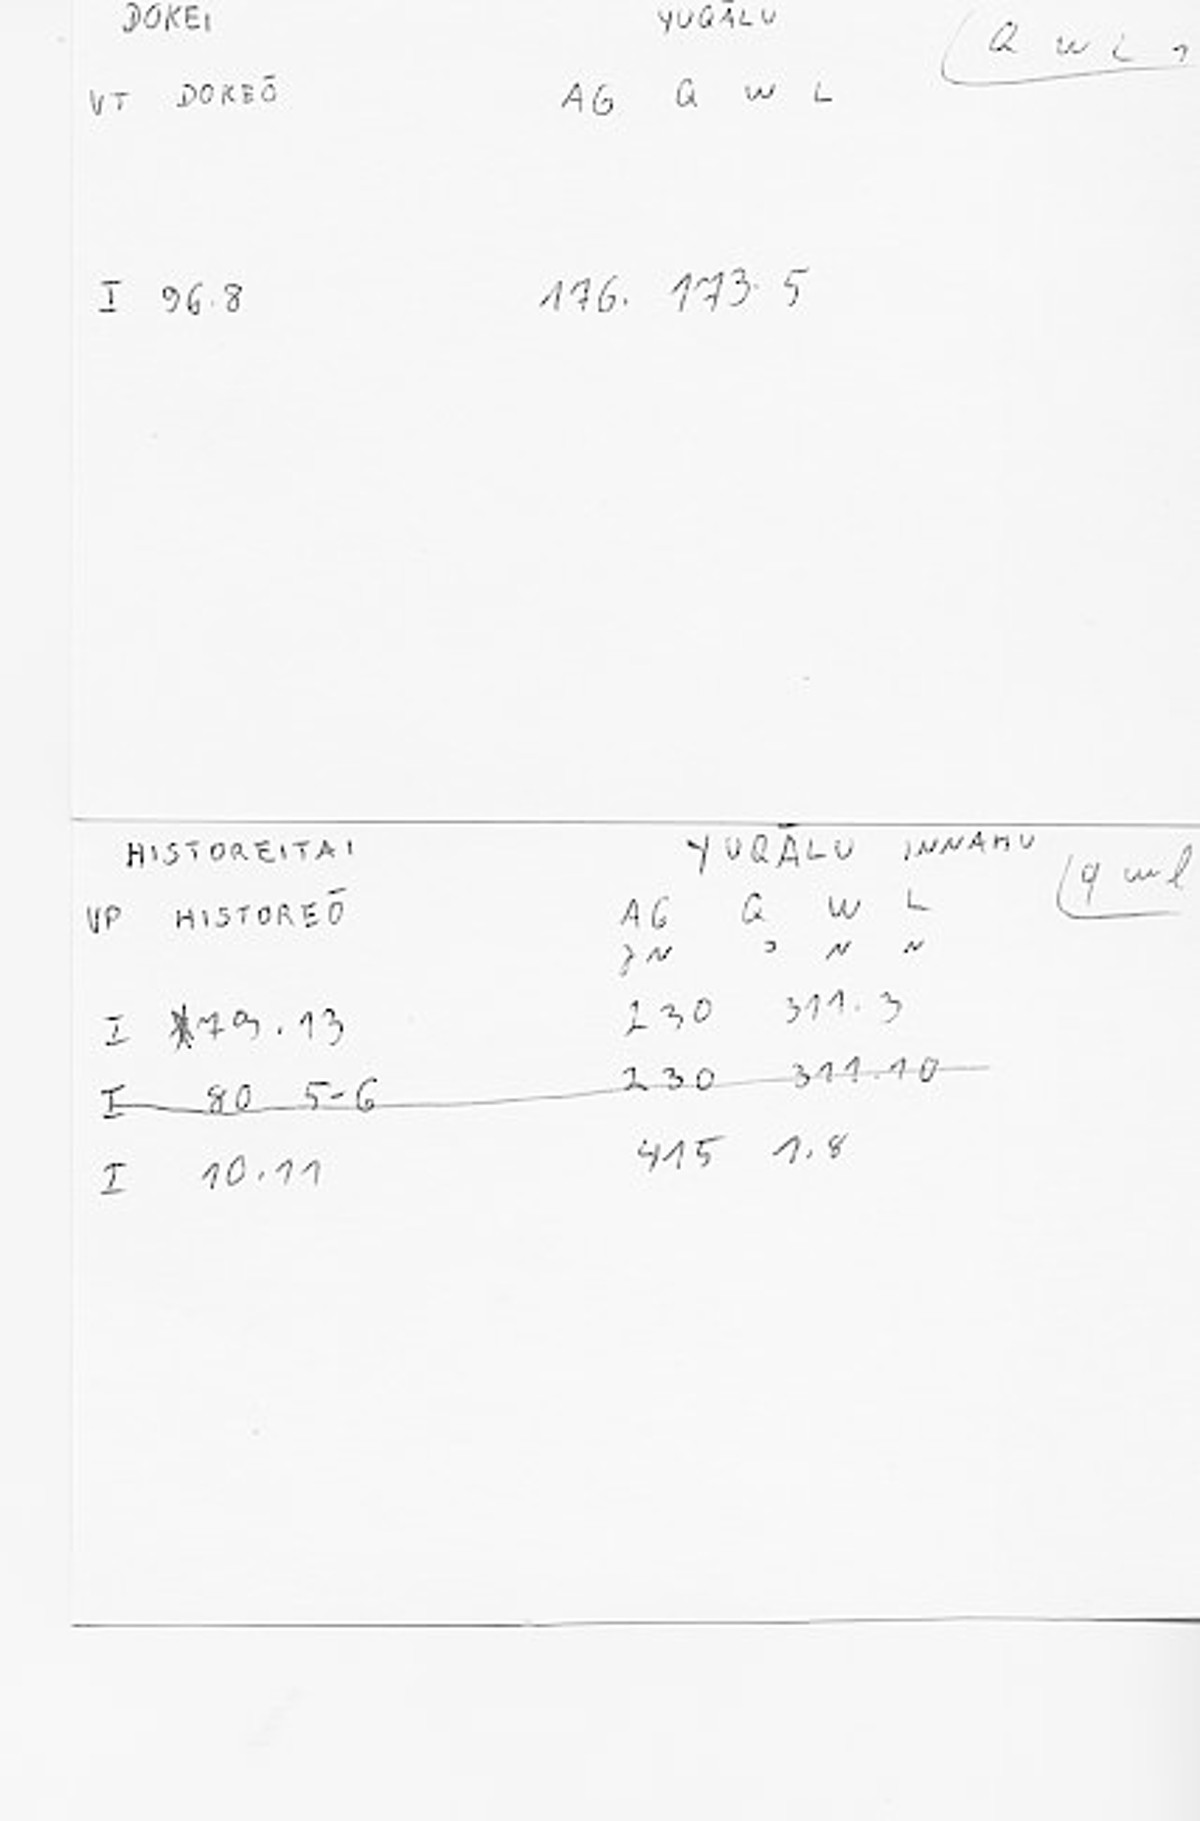 DOKEI YUQĀLU (Q W L
VT DOKEŌ AG Q W L
I 96.8 176. 173.5
HISTOREITAI YUQĀLU INNAHU (qwl
VP HISTOREŌ AG Q W L
ʾ N N
I 79.13 230 311.3
I 80 5-6 230 311.10
I 10.11 415 1.8